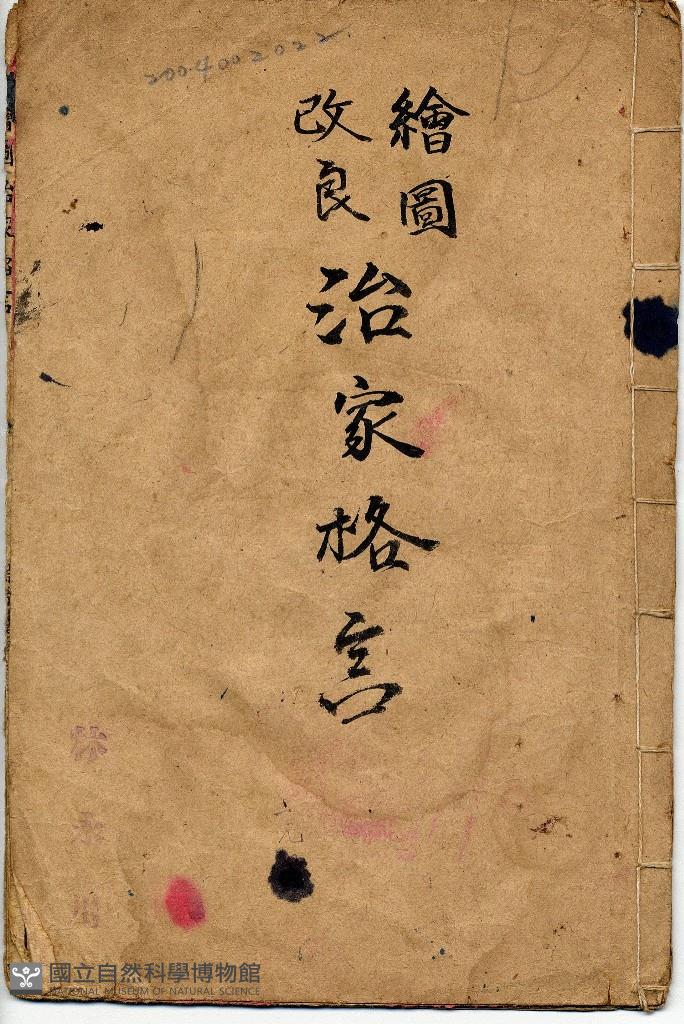 2004002022
繪圖
改良
治家格言
六元
國立自然科學博物館
NATIONAL MUSEUM OF NATURAL SCIENCE